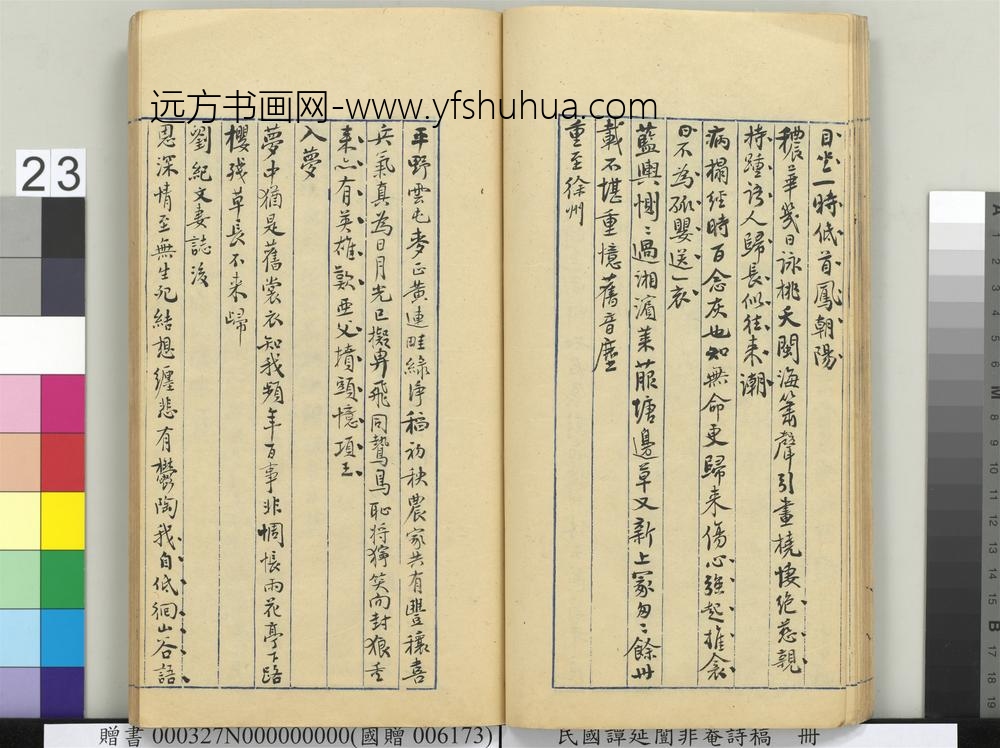 远方书画网-www.yfshuhua.com
日坐一時低首鳳朝陽
穠華幾日詠桃夭閩海簫聲引畫橈悽絕慈親
持踵誘人歸長似往来潮
病榻經時百念灰也知無命更歸来傷心強起推衾
日不為孤嬰送一衣
藍輿惻惻過湘濱萊菔塘邊草又新上冢匆匆餘卅
載不堪重憶舊音塵
重至徐州
平野雲屯麥正黃連畦綠淨稻初秧農家共有豐穰喜
兵氣真為日月光已擬奔飛同鷙鳥恥将獰笑向封狼重
来亦有英雄歎亜父墳頭憶項王
入夢
夢中猶是舊裳衣知我頻年百事非惆悵雨花亭下路
櫻殘草長不来歸
劉紀文妻誌後
思深情至無生死結想纏悲有鬱陶我自低徊山谷語
23
贈書 000327N000000000(國贈 006173)
民國譚延闓非菴詩稿 冊